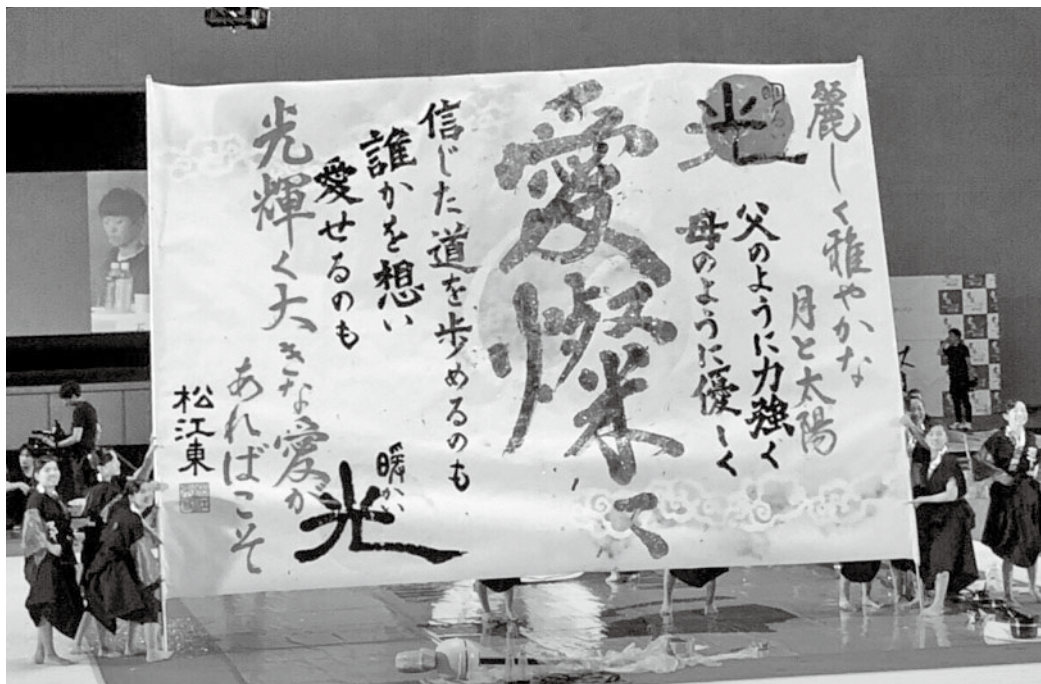 麗しく雅やかな
月と太陽
明るい
光
父のように力強く
母のように優しく
愛燦て
信じた道を歩めるのも
誰かを想い
愛せるのも
暖かい
光
光輝く大きな愛が
あればこそ
松江東